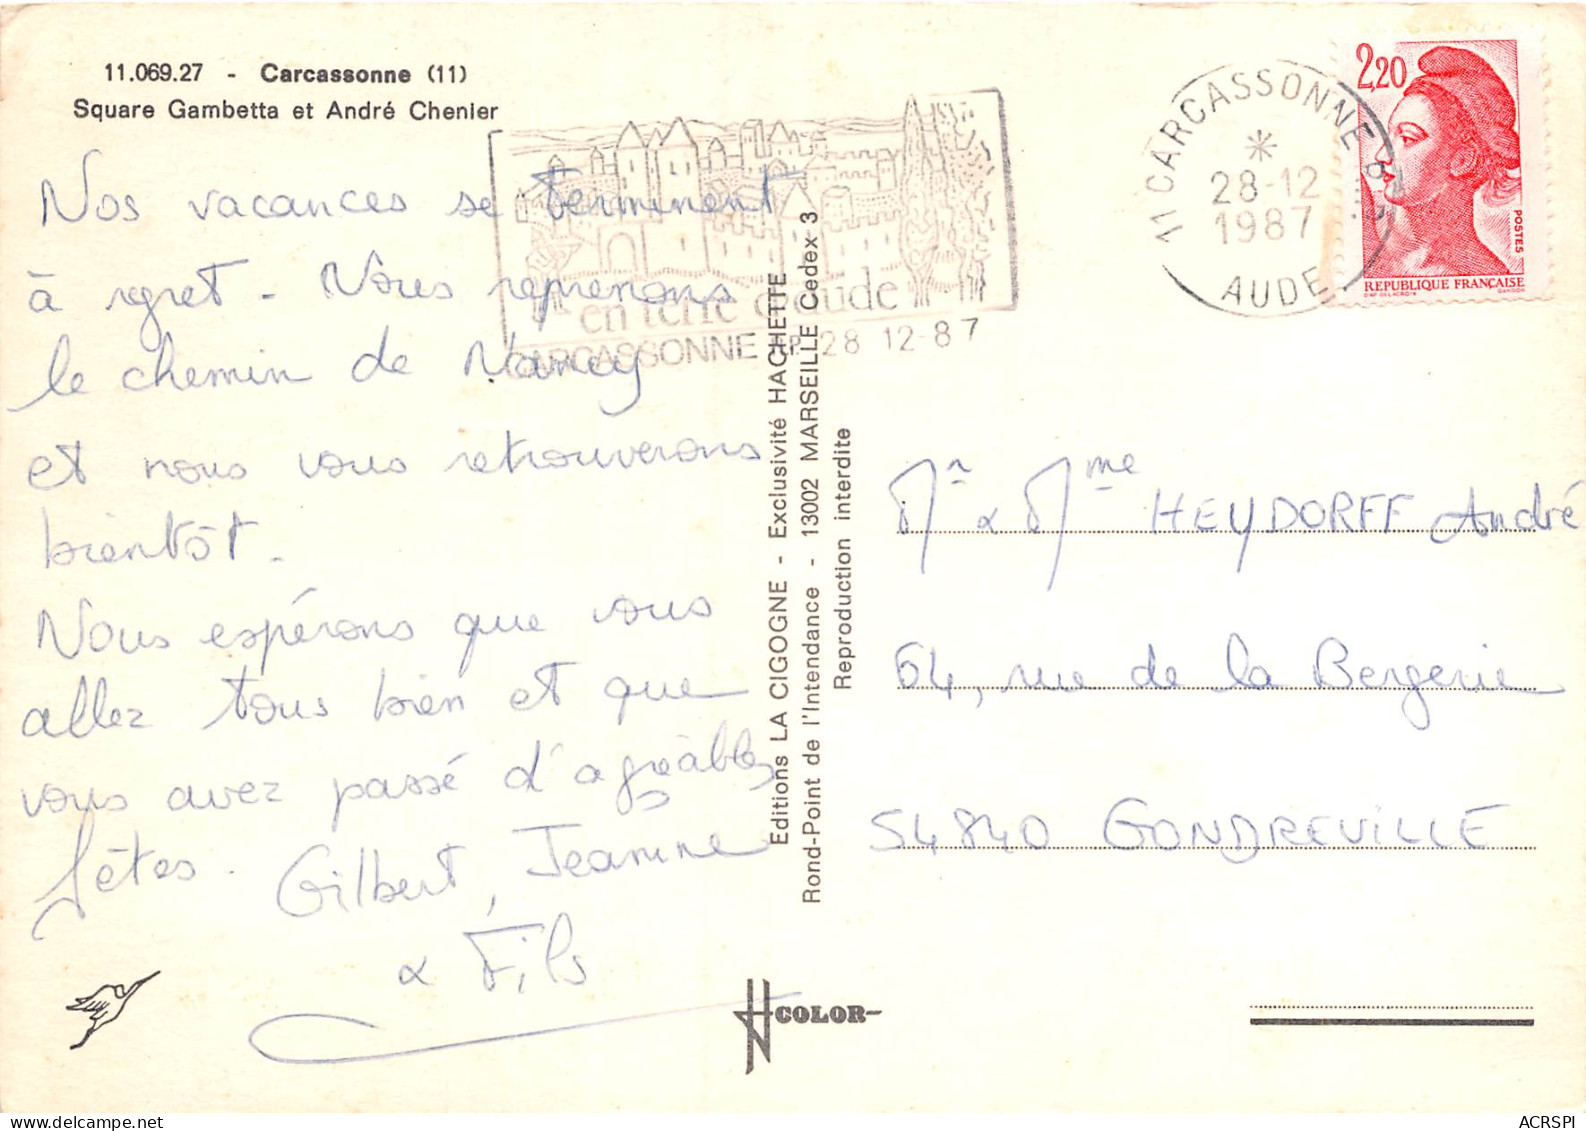 11.069.27 - Carcassonne (11)
Square Gambetta et André Chenier
Nos vacances se terminent
à regret - Nous reprenons
le chemin de Nancy
et nous vous retrouverons
bientôt.
Nous espérons que vous
allez tous bien et que
vous avez passé d'agréables
fêtes. Gilbert, Jeanine
& Fils
en terre d'aude
CARCASSONNE RP 28 12-87
Editions LA CIGOGNE - Exclusivité HACHETTE
Rond-Point de l'Intendance - 13002 MARSEILLE Cedex 3
Reproduction interdite
COLOR
11 CARCASSONNE R.P.
28-12
1987
AUDE
2,20
POSTES
REPUBLIQUE FRANÇAISE
D'AP. DELACROIX GANDON
Mr & Mme HEYDORFF André
64, rue de la Bergerie
54840 GONDREVILLE
ACRSPI